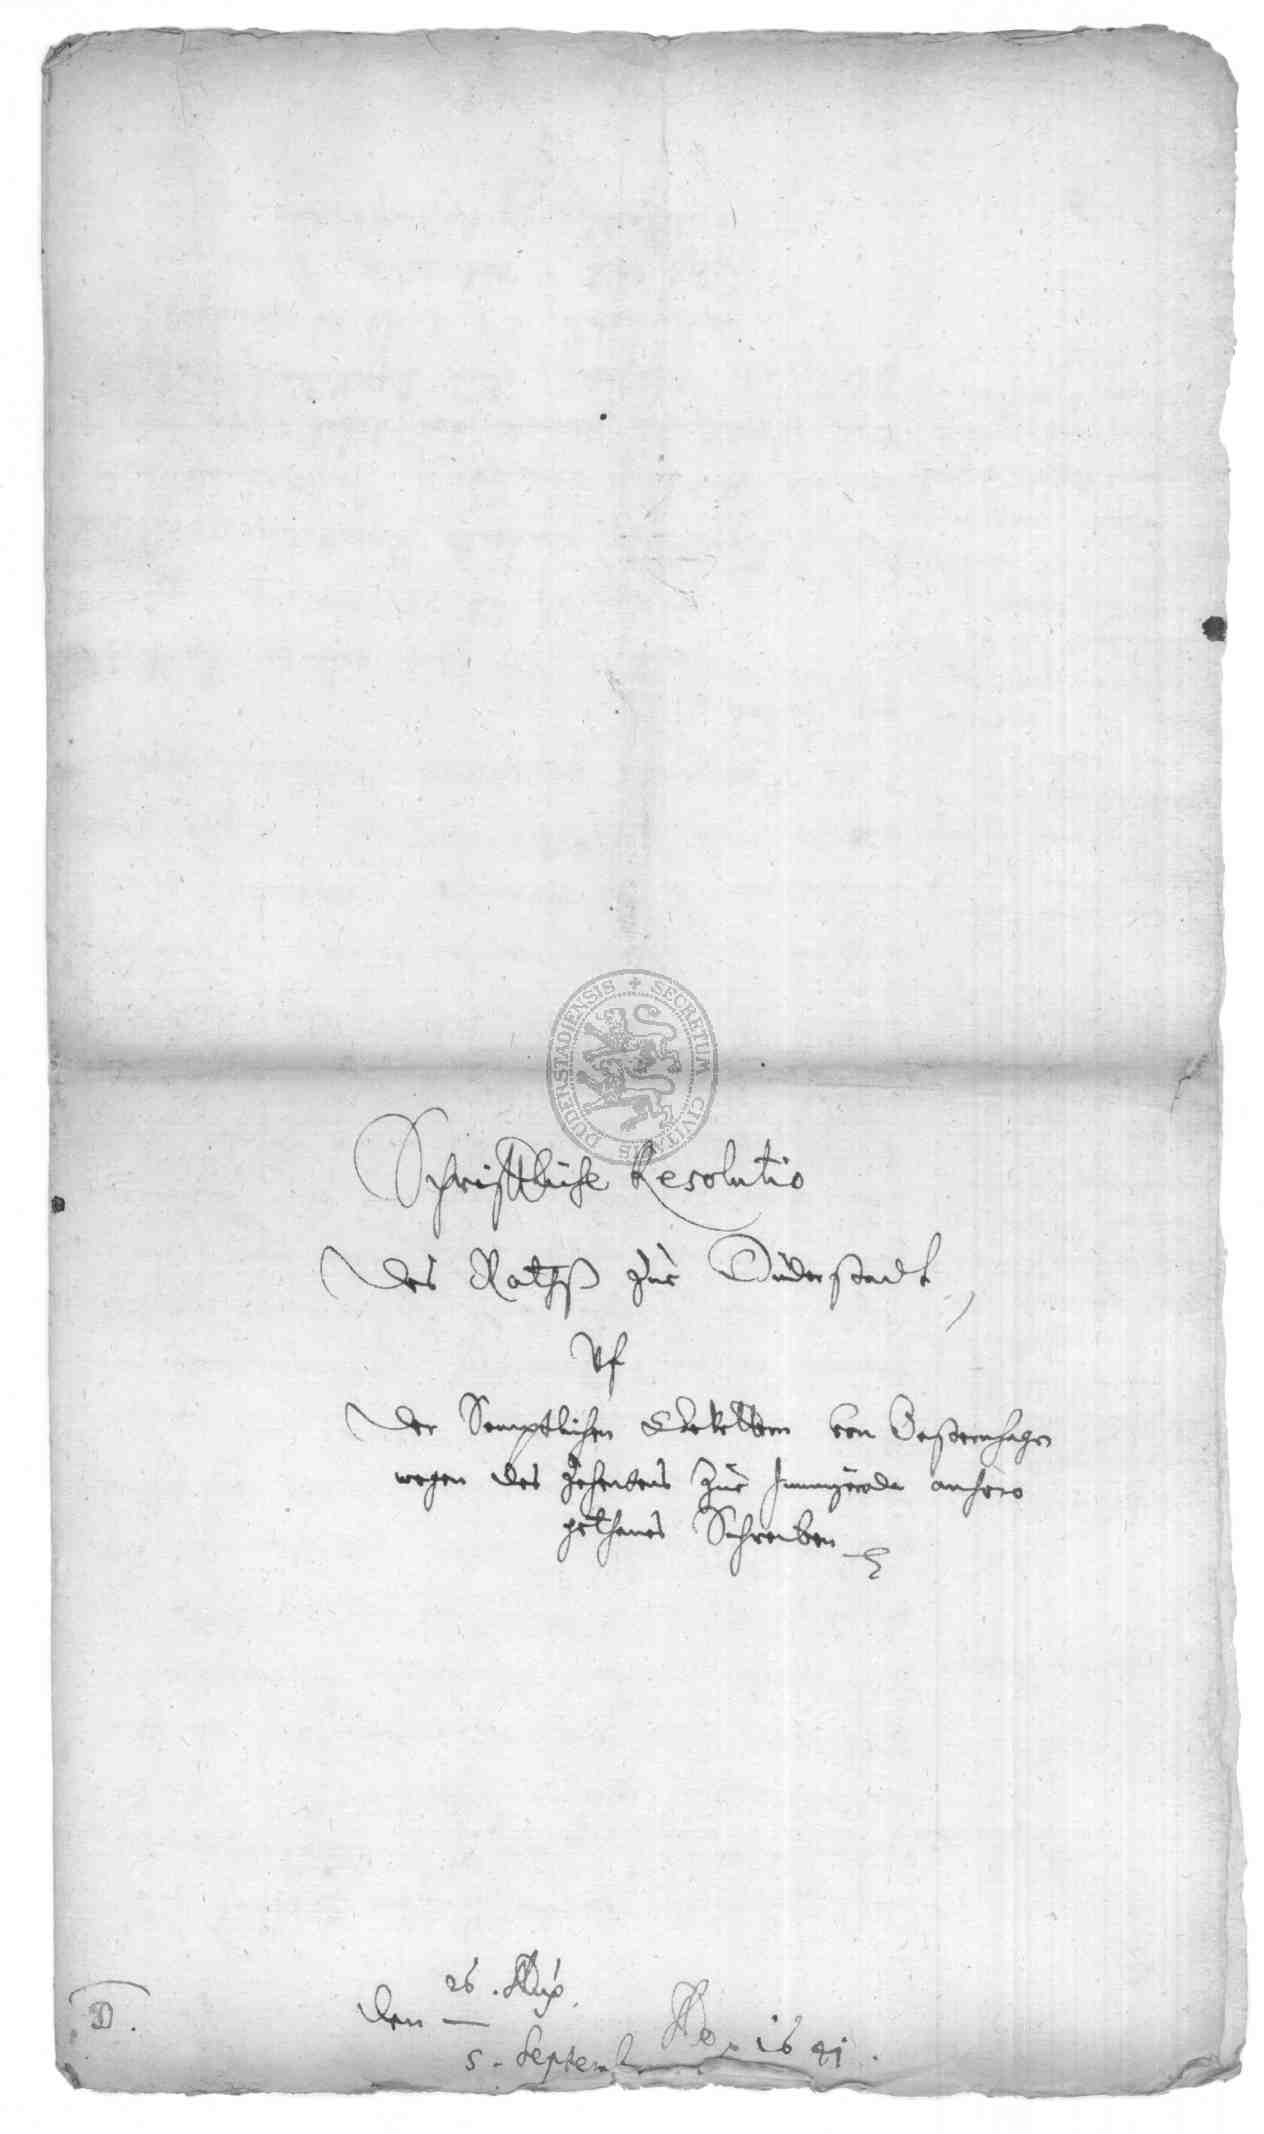 SECRETUM CIVITATIS DUDERSTADIENSIS
Schrifftliche Resolutio
des Rathß zur Duderstadt,
vf
der Semptlichen von Westernhagen
wegen des Zehenten zue anhero
gethanes Schreiben
26. Aug.
den —
5. Septemb. Ao. 1641.
D.